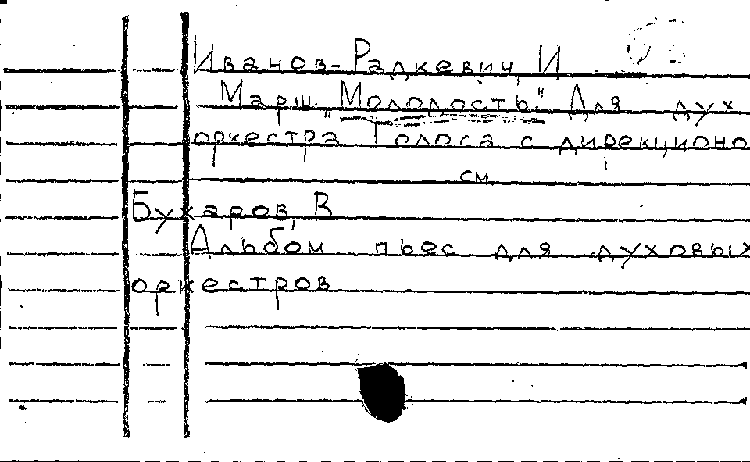 Иванов-Радкевич, И
Марш „Молодость". Для дух
оркестра Голоса с дирекционо
см.
Бухаров, В
Альбом пьес для духовых
оркестров